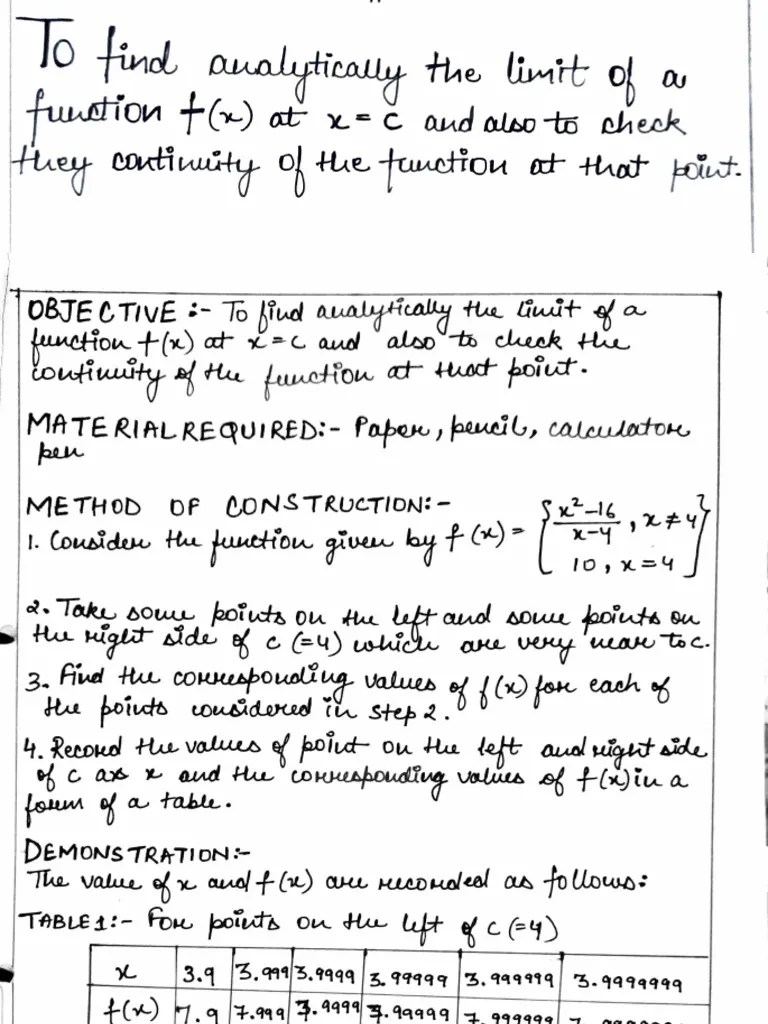 To find analytically the limit of a
function f(x) at x = c and also to check
they continuity of the function at that point.
OBJECTIVE :- To find analytically the limit of a
function f(x) at x = c and also to check the
continuity of the function at that point.
MATERIAL REQUIRED:- Paper, pencil, calculator
pen
METHOD OF CONSTRUCTION:-
1. Consider the function given by f(x) = { x²-16/x-4 , x ≠ 4
10, x = 4 }
2. Take some points on the left and some points on
the right side of c (=4) which are very near to c.
3. Find the corresponding values of f(x) for each of
the points considered in step 2.
4. Record the values of point on the left and right side
of c as x and the corresponding values of f(x) in a
form of a table.
DEMONSTRATION:-
The value of x and f(x) are recorded as follows:
TABLE 1:- For points on the left of c (=4)
x 3.9 3.999 3.9999 3.99999 3.999999 3.9999999
f(x) 7.9 7.999 7.9999 7.99999 7.999999